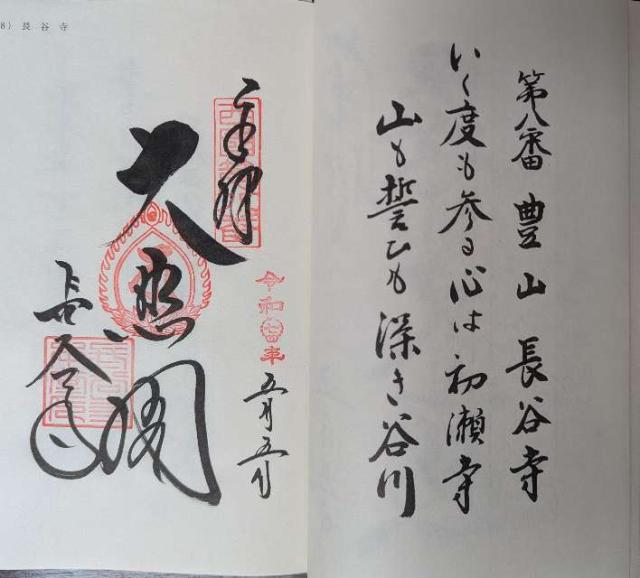 第八番 豊山 長谷寺
いく度も参る心は初瀬寺
山も誓ひも深き谷川
8) 長谷寺
奉拝
令和四年
五月五日
大悲閣
長谷寺